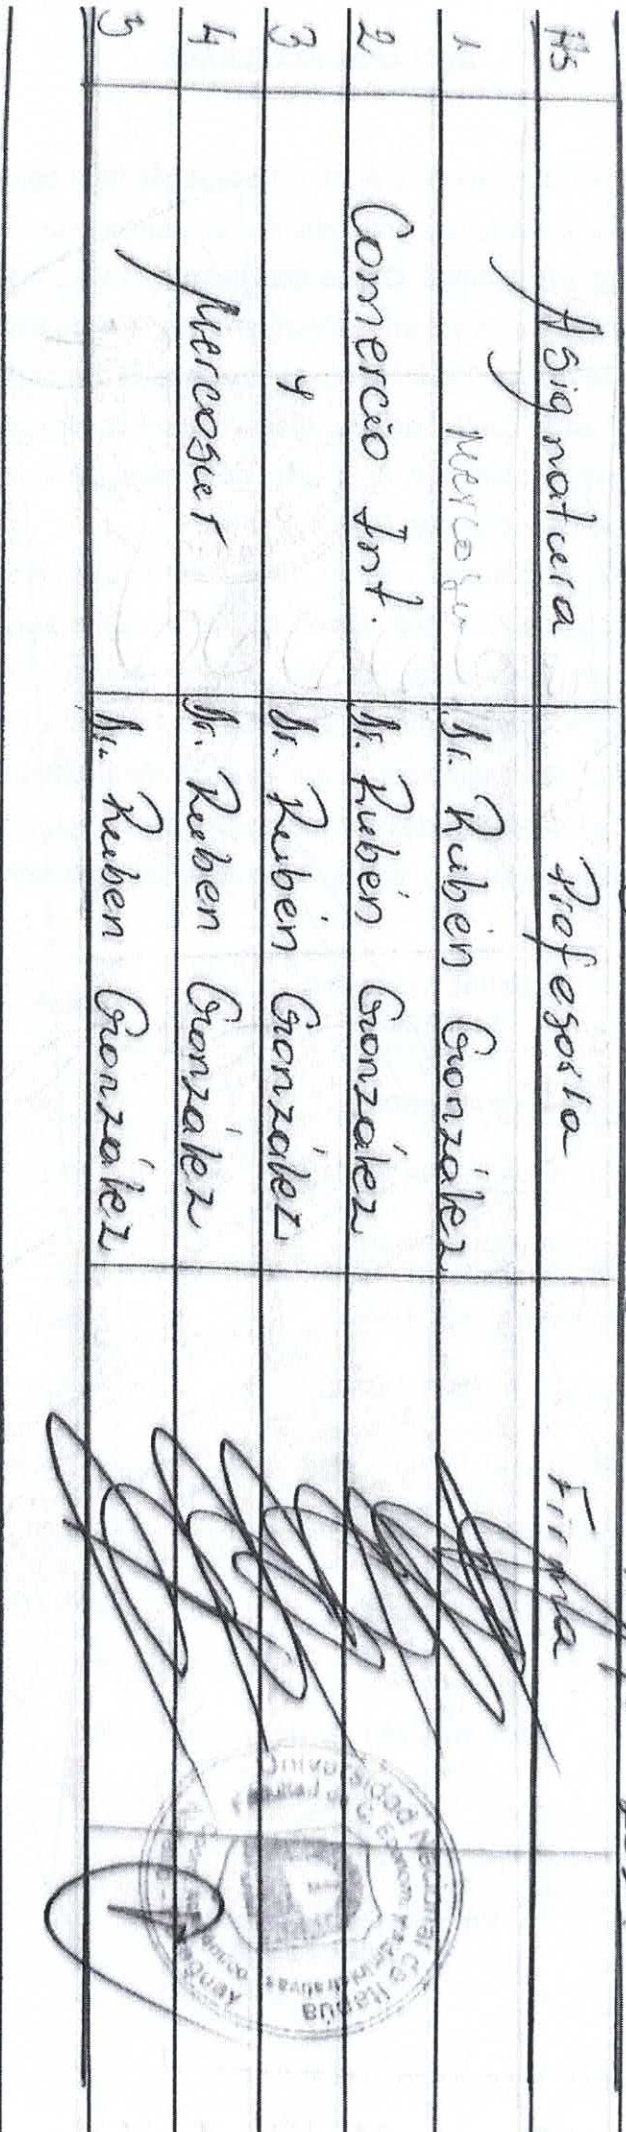 Hs Asignatura Profesor/a Firma
1 Mercosu Dr. Rubén González
2 Comercio Int. Dr. Rubén González
3 y Dr. Rubén González
4 Mercosur Dr. Rubén González
5 Dr. Ruben González
Universidad Nacional de Itapúa